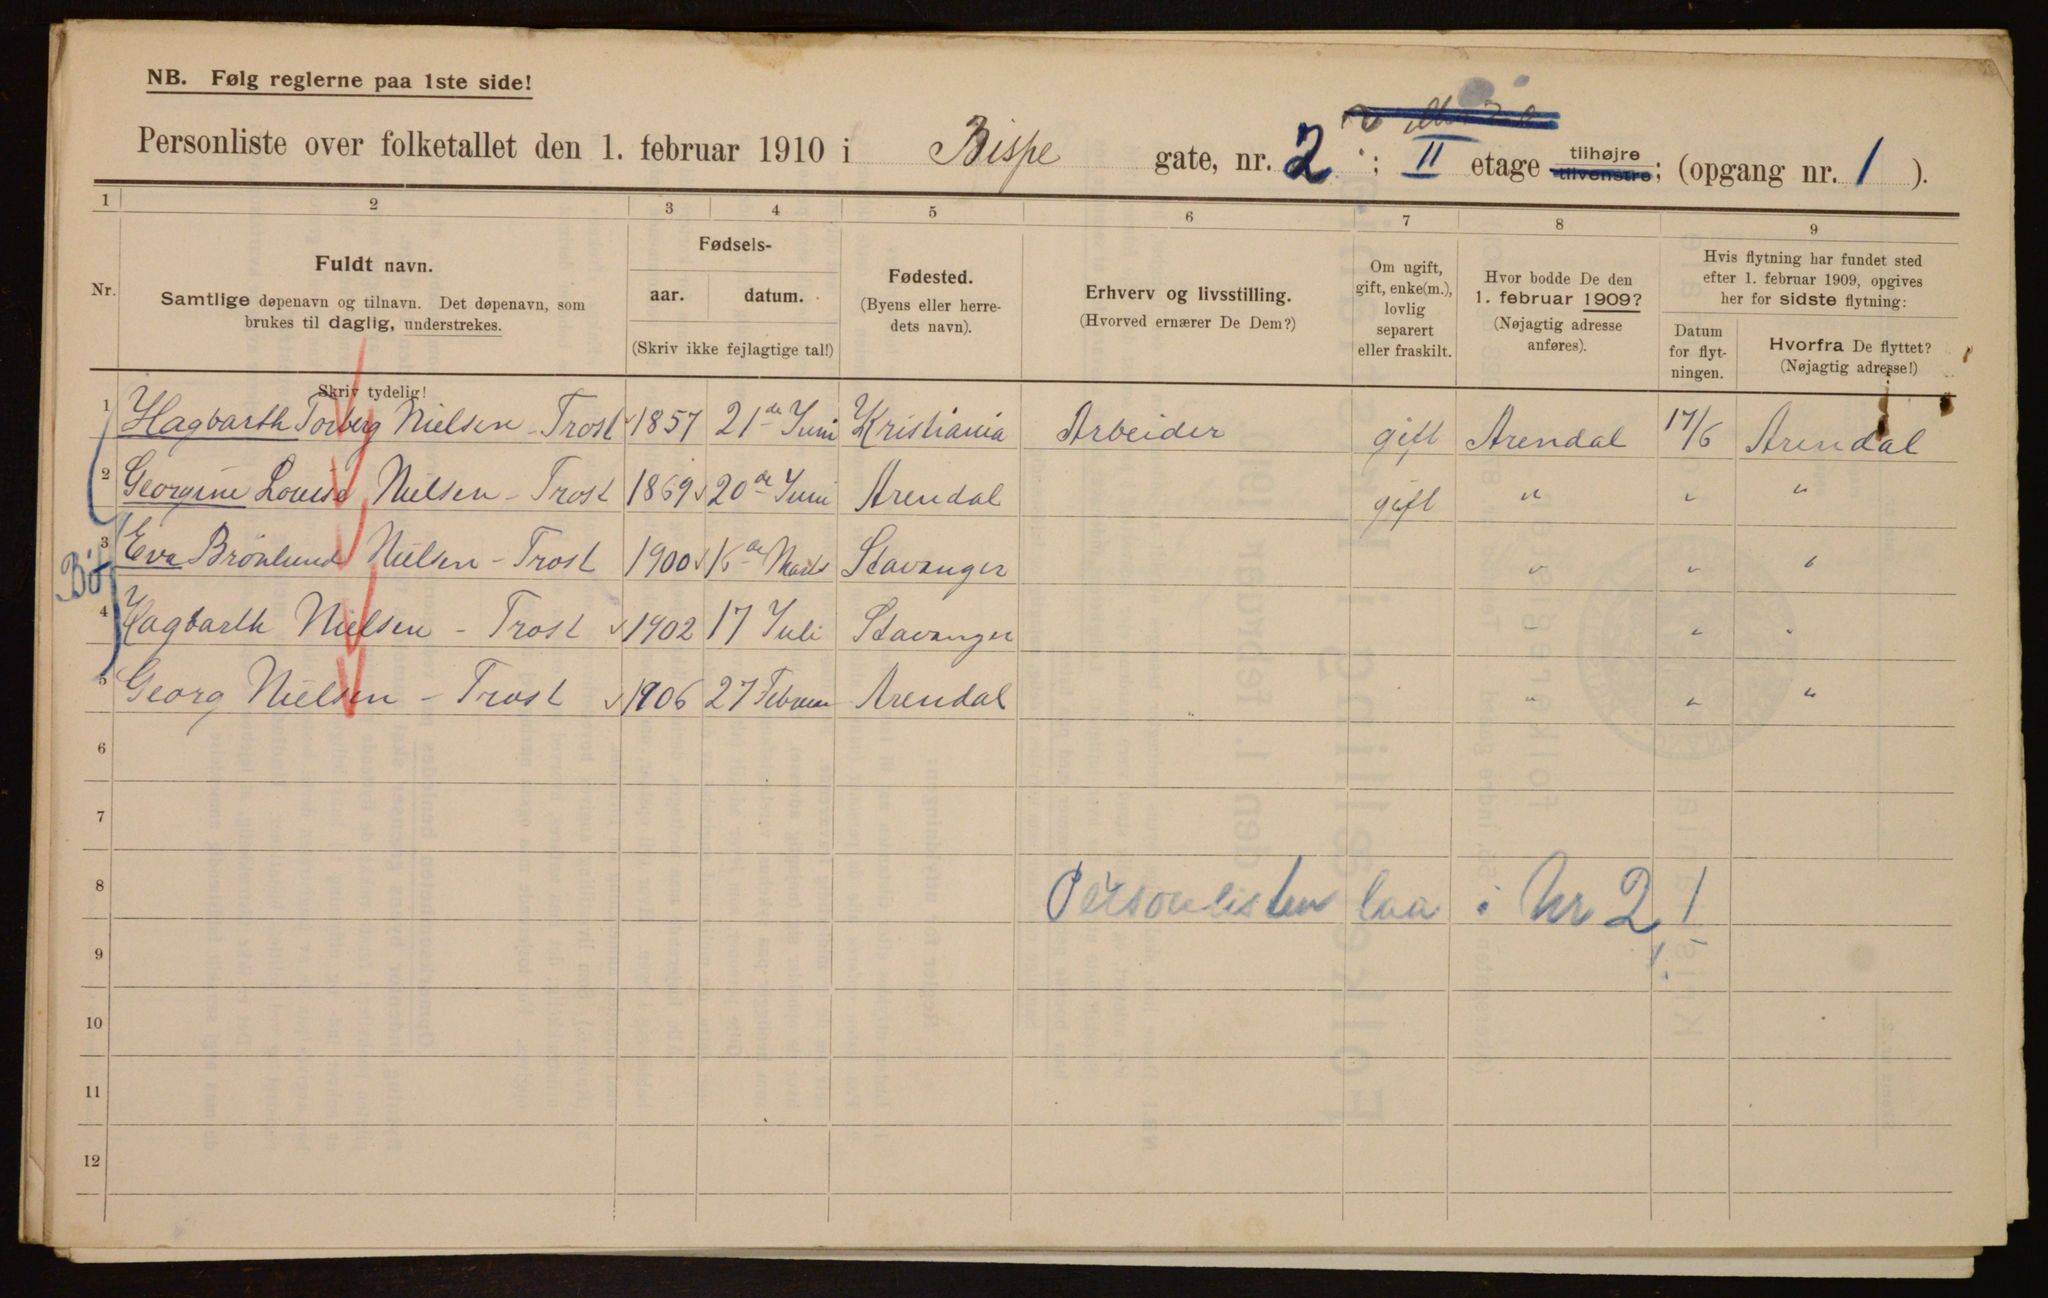 NB. Følg reglerne paa 1ste side!
Personliste over folketallet den 1. februar 1910 i Bispe gate, nr. 2 ; II etage tilhøjre tilvenstre; (opgang nr. 1 ).
1 2 3 4 5 6 7 8 9
Nr.
Fuldt navn.
Samtlige døpenavn og tilnavn. Det døpenavn, som
brukes til daglig, understrekes.
Skriv tydelig!
Fødsels-
aar. datum.
(Skriv ikke fejlagtige tal!)
Fødested.
(Byens eller herre-
dets navn).
Erhverv og livsstilling.
(Hvorved ernærer De Dem?)
Om ugift,
gift, enke(m.),
lovlig
separert
eller fraskilt.
Hvor bodde De den
1. februar 1909?
(Nøjagtig adresse
anføres).
Hvis flytning har fundet sted
efter 1. februar 1909, opgives
her for sidste flytning:
Datum
for flyt-
ningen.
Hvorfra De flyttet?
(Nøjagtig adresse!)
1 Hagbarth Torberg Nielsen - Trost 1857 21de Juni Kristiania Arbeider gift Arendal 17/6 Arendal
2 Georgine Louise Nielsen - Trost 1869 20de Juni Arendal gift " " "
3 Eva Brönlund Nielsen - Trost 1900 16de Marts Stavanger " " "
4 Hagbarth Nielsen - Trost 1902 17 Juli Stavanger " " "
5 Georg Nielsen - Trost 1906 27 Februar Arendal " " "
6
7
8 Personlisten laa i Nr 2, 1
9
10
11
12